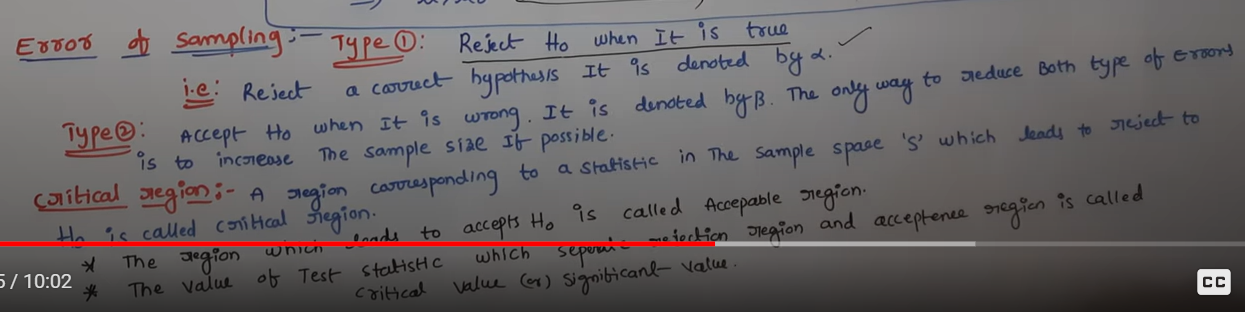 Error of Sampling:- Type ①: Reject Ho when It is true
i.e: Reject a correct hypothesis It is denoted by α.
Type ②: Accept Ho when It is wrong. It is denoted by β. The only way to reduce Both type of Errors
is to increase The sample size If possible.
Critical region:- A region corresponding to a statistic in The sample space 'S' which leads to reject to
Ho is called critical region.
* The region which leads to accepts Ho is called Accepable region.
* The value of Test statistic which seperate rejection region and acceptence region is called
critical value (or) significant value.
/ 10:02
CC